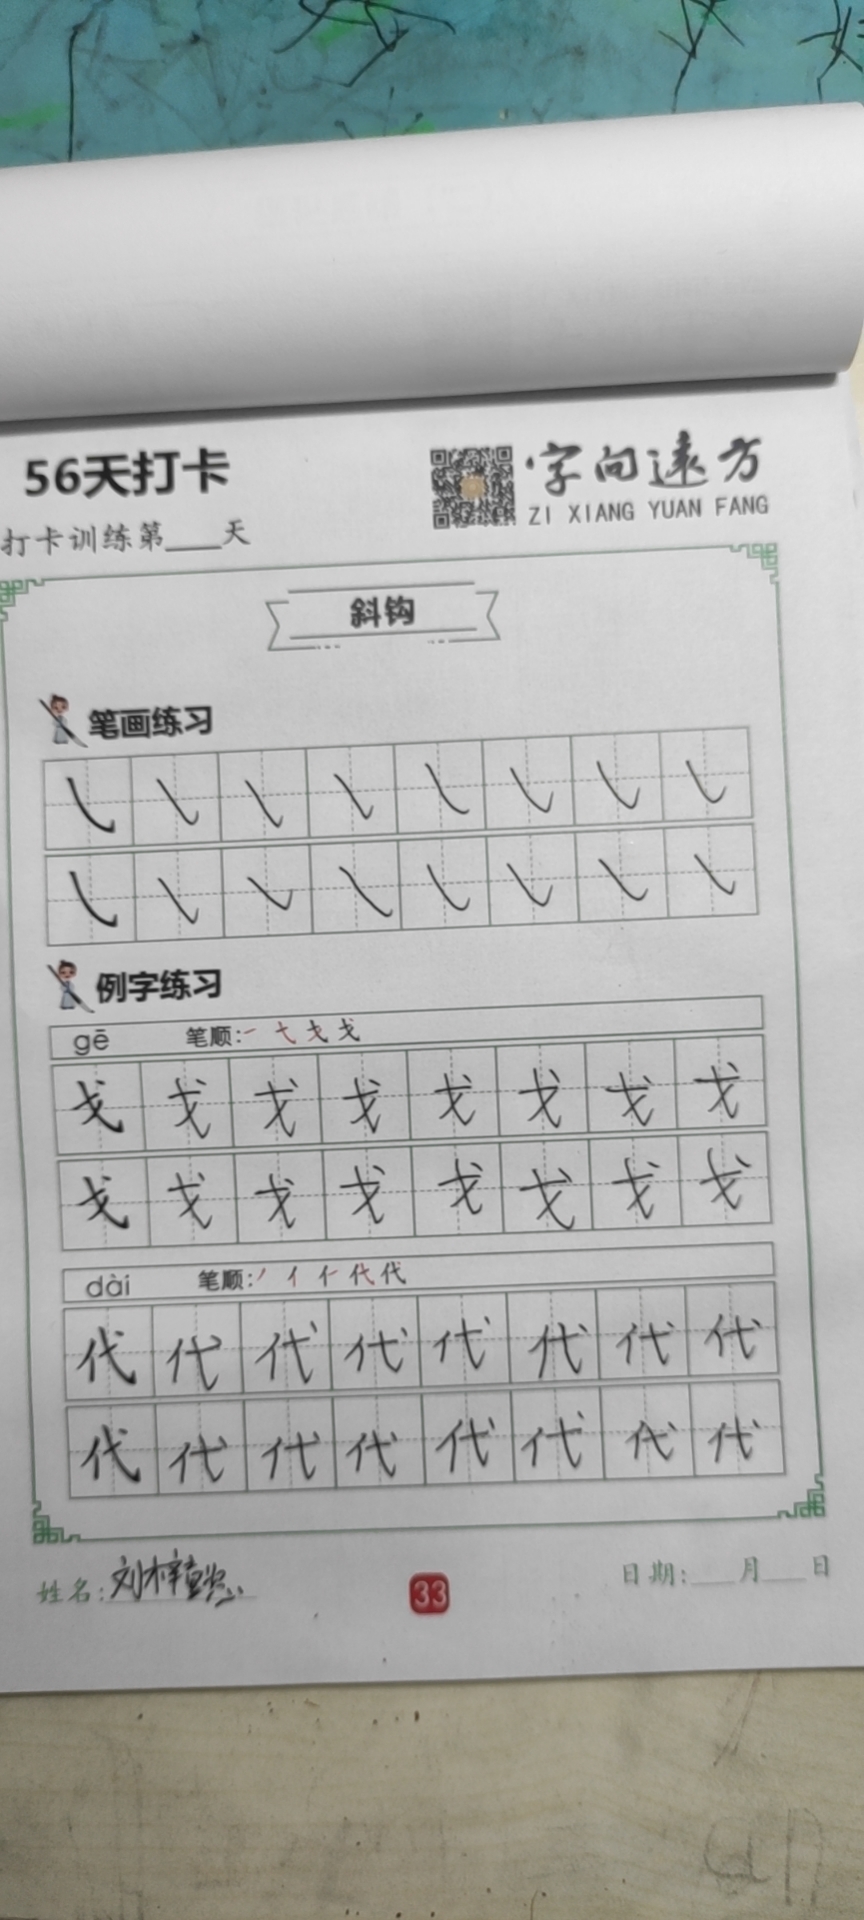 56天打卡
字向远方
ZI XIANG YUAN FANG
打卡训练第___天
斜钩
笔画练习
例字练习
gē 笔顺:
戈戈戈戈戈戈戈戈
戈戈戈戈戈戈戈戈
dài 笔顺:
代代代代代代代代
代代代代代代代代
姓名:刘梓
33
日期:___月___日